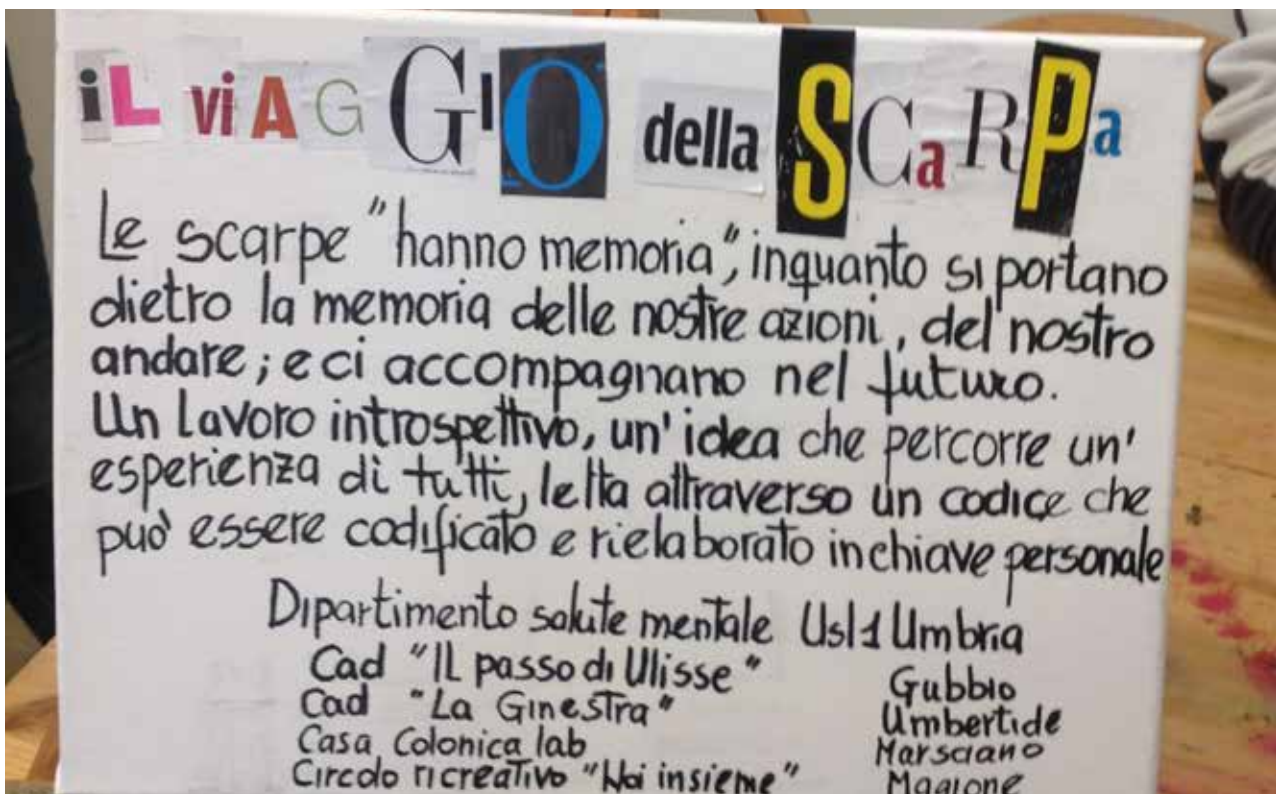 iL viAGGIO della SCaRPa
Le scarpe "hanno memoria", inquanto si portano
dietro la memoria delle nostre azioni, del nostro
andare; e ci accompagnano nel futuro.
Un lavoro introspettivo, un'idea che percorre un'
esperienza di tutti, letta attraverso un codice che
può essere codificato e rielaborato in chiave personale
Dipartimento salute mentale Usl1 Umbria
Cad "IL passo di Ulisse" Gubbio
Cad "La Ginestra" Umbertide
Casa Colonica lab Marsciano
Circolo ricreativo "Noi insieme" Magione